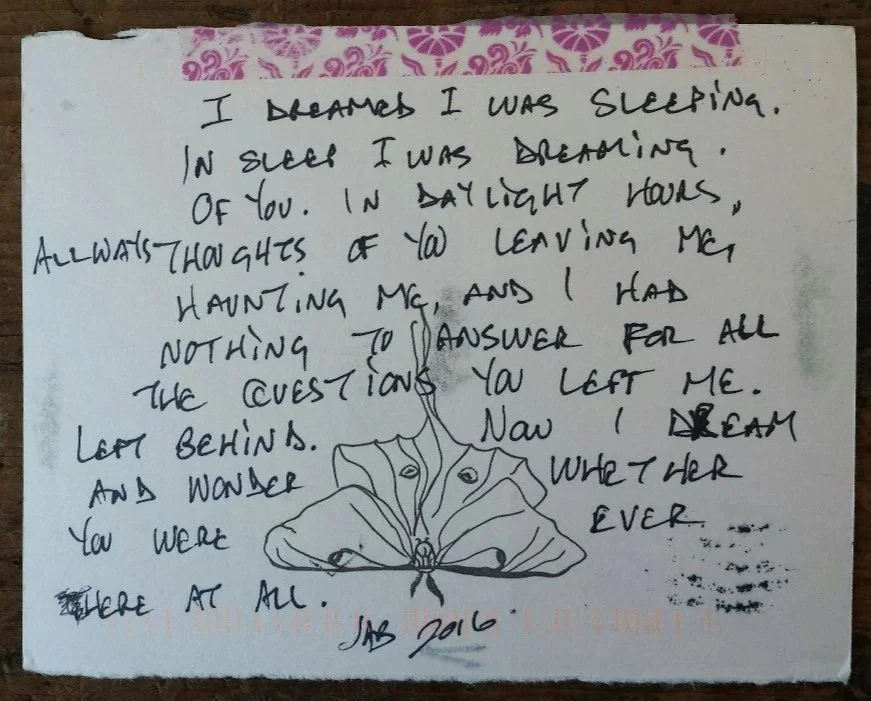 I DREAMED I WAS SLEEPING.
IN SLEEP I WAS DREAMING.
OF YOU. IN DAYLIGHT HOURS,
ALLWAYS THOUGHTS OF YOU LEAVING ME,
HAUNTING ME, AND I HAD
NOTHING TO ANSWER FOR ALL
THE QUESTIONS YOU LEFT ME.
LEFT BEHIND. NOW I DREAM
AND WONDER WHETHER
YOU WERE EVER
HERE AT ALL.
JAB 2016